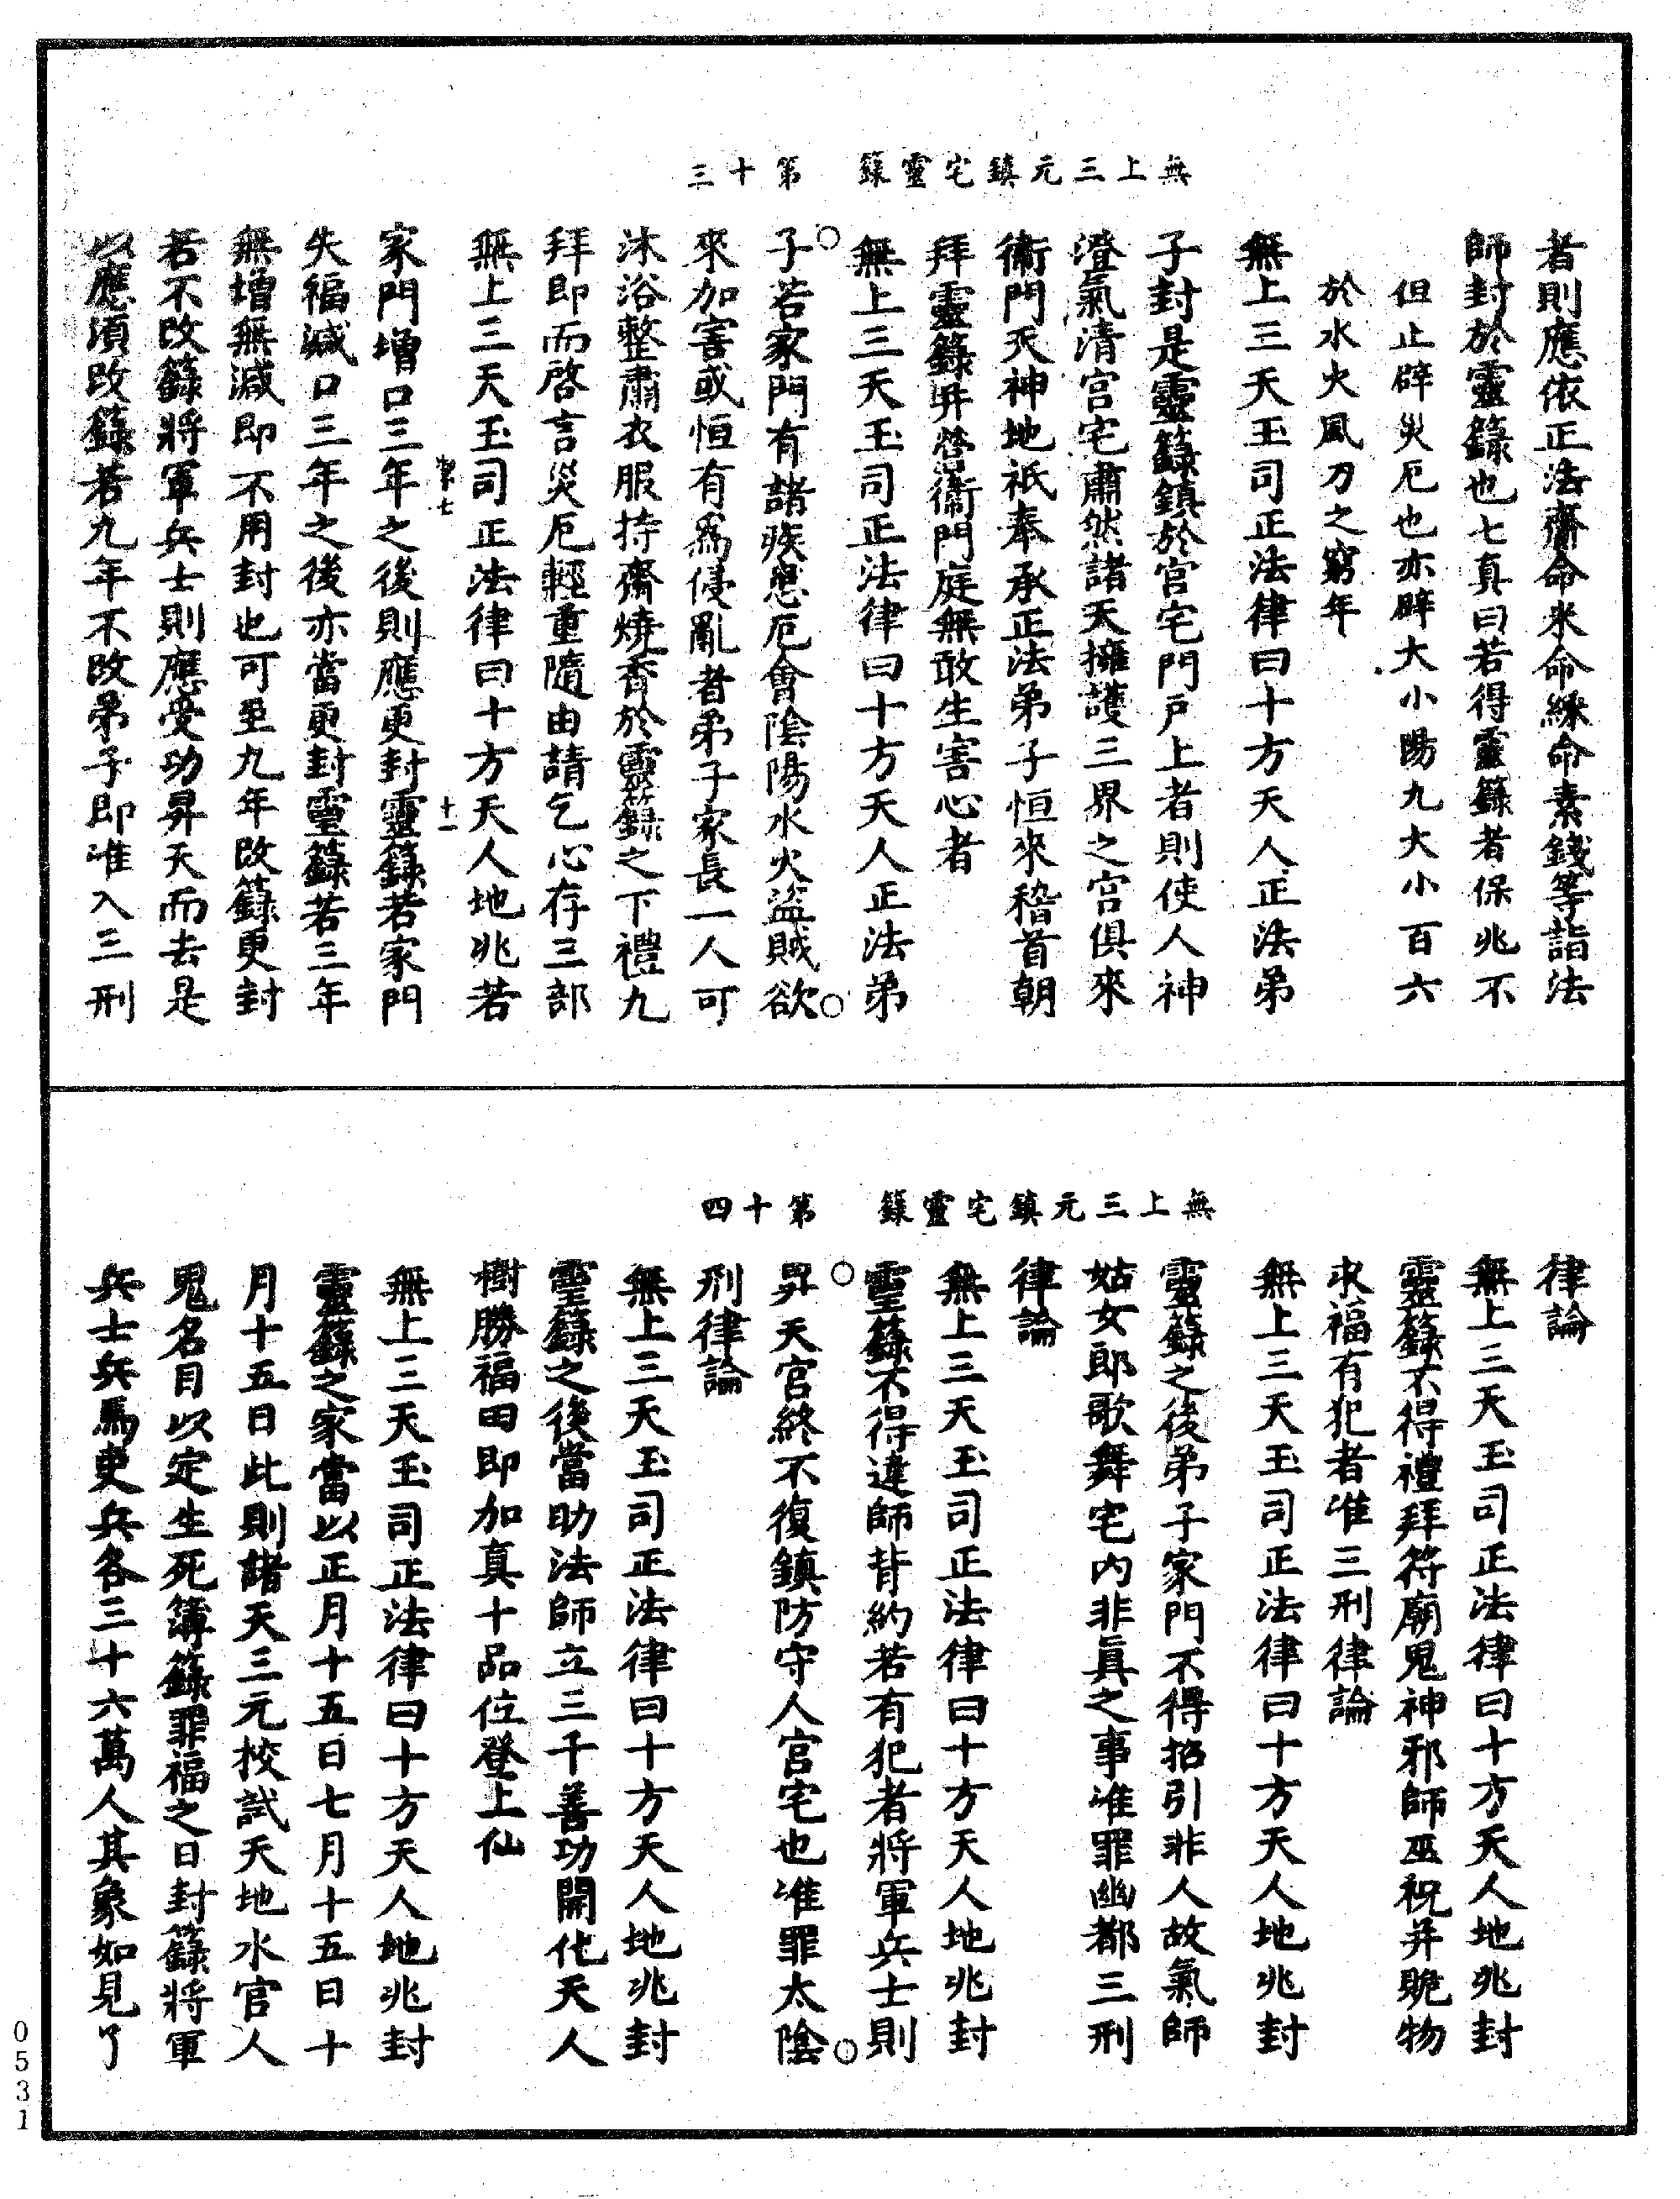 無上三元鎮宅靈籙　第十三
者則應依正法齋命米命綵命素錢等詣法
師封於靈籙也七真曰若得靈籙者保兆不
但止辟災厄也亦辟大小陽九大小百六
於水火風刀之窮年
無上三天玉司正法律曰十方天人正法弟
子封是靈籙鎮於宮宅門戶上者則使人神
澄氣清宮宅肅然諸天擁護三界之官俱來
衞門天神地祇奉承正法弟子恒來稽首朝
拜靈籙并營衞門庭無敢生害心者
無上三天玉司正法律曰十方天人正法弟
子若家門有諸疾患厄會陰陽水火盜賊欲
來加害或恒有爲侵亂者弟子家長一人可
沐浴整肅衣服持齋燒香於靈籙之下禮九
拜即而啓言災厄輕重隨由請乞心存三部
無上三天玉司正法律曰十方天人地兆若
家門增口三年之後則應更封靈籙若家門
失福減口三年之後亦當更封靈籙若三年
無增無減即不用封也可至九年改籙更封
若不改籙將軍兵士則應受功昇天而去是
以應須改籙若九年不改弟子即准入三刑
無上三元鎮宅靈籙　第十四
律論
無上三天玉司正法律曰十方天人地兆封
靈籙不得禮拜符廟鬼神邪師巫祝并賧物
求福有犯者准三刑律論
無上三天玉司正法律曰十方天人地兆封
靈籙之後弟子家門不得招引非人故氣師
姑女郎歌舞宅內非真之事准罪幽都三刑
律論
無上三天玉司正法律曰十方天人地兆封
靈籙不得違師背約若有犯者將軍兵士則
昇天官終不復鎮防守人宮宅也准罪太陰
刑律論
無上三天玉司正法律曰十方天人地兆封
靈籙之後當助法師立三千善功開化天人
樹勝福田即加真十品位登上仙
無上三天玉司正法律曰十方天人地兆封
靈籙之家當以正月十五日七月十五日十
月十五日此則諸天三元校試天地水官人
鬼名目以定生死簿籙罪福之日封籙將軍
兵士兵馬吏兵各三十六萬人其象如見了
0531